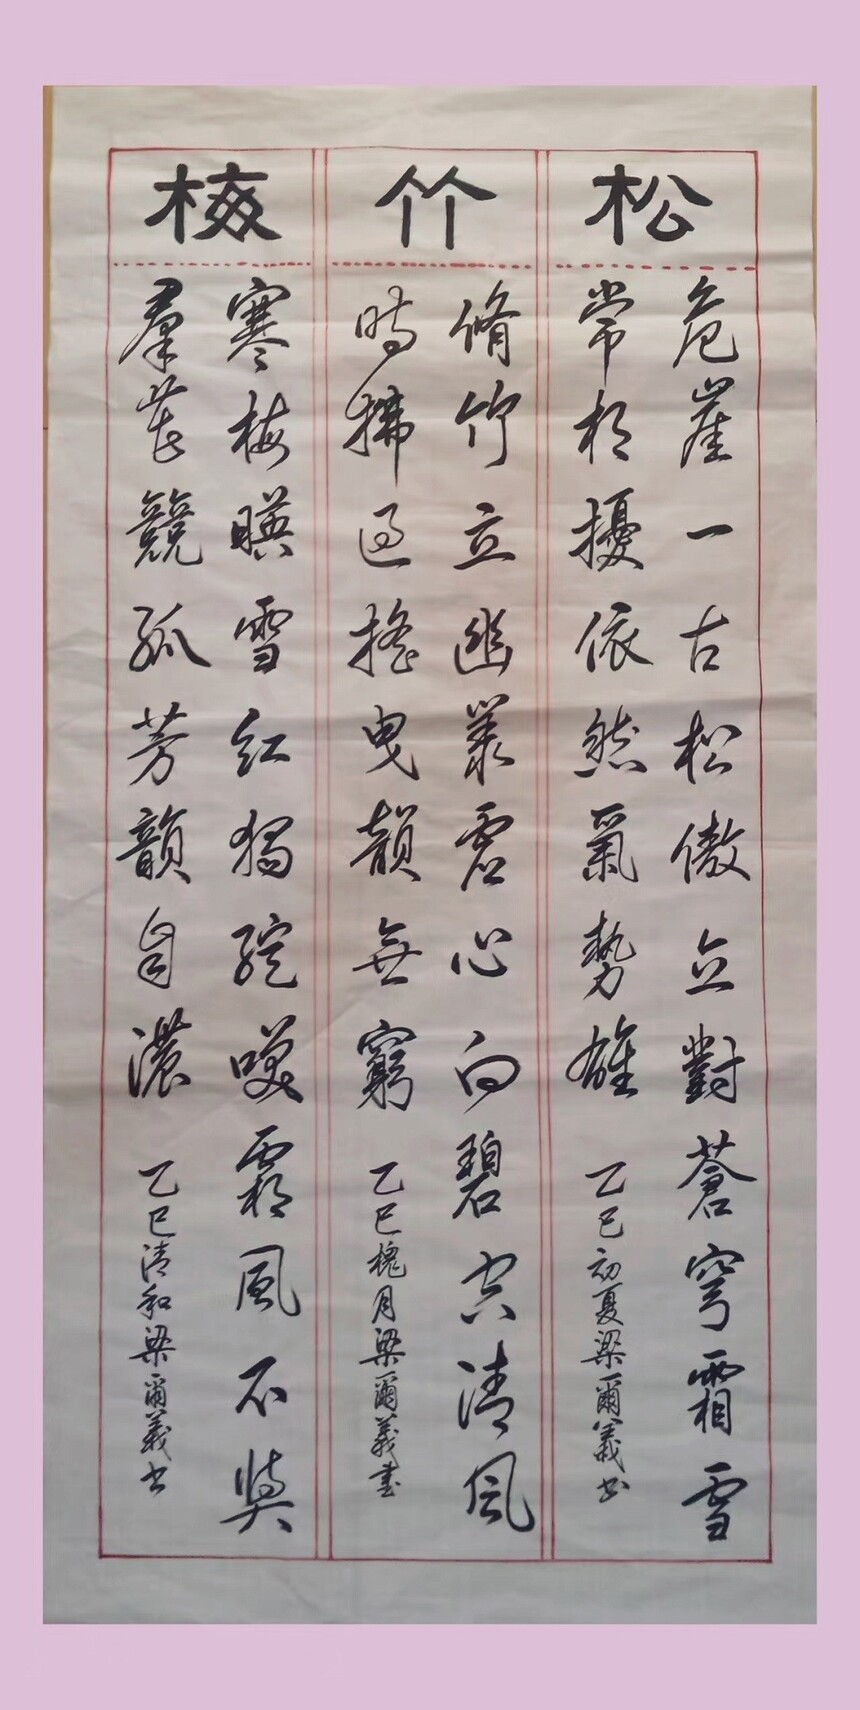 松
危崖一古松傲立對蒼穹霜雪
常相擾依然氣勢雄
乙巳初夏梁爾義书
竹
脩竹立幽叢虛心向碧空清風
時拂過搖曳韻無窮
乙巳槐月梁爾義書
梅
寒梅暎雪紅獨綻唉霜風不與
羣芲競孤芳韻自濃
乙巳清和梁爾義书